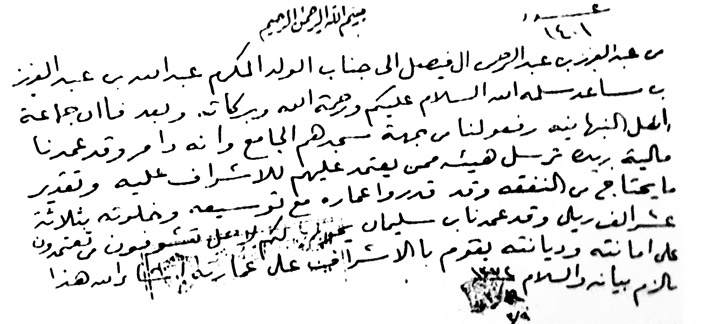 بسم الله الرحمن الرحيم
عدد
١٤٠١
من عبدالعزيز بن عبدالرحمن ال فيصل الى جناب الولد المكرم عبدالله بن عبدالعزيز
بن مساعد سلمه الله السلام عليكم ورحمة الله وبركاته وبعد فان جماعة
اهل النبهانيه رفعوا لنا من جهة مسجدهم الجامع وانه دامر وقد عمدنا
مالية بريده ترسل هيئه ممن يعتمد عليهم للاشراف عليه وتقدير
ما يحتاج من النفقه وقد قدروا عماره مع توسيعه وخلوته بثلاثة
عشر الف ريال وقد عمدنا بن سليمان لكم تشوفون من تعتمدون
على امانته وديانته يقوم بالاشراف على عمارته هذا
مالزم بيانه والسلام